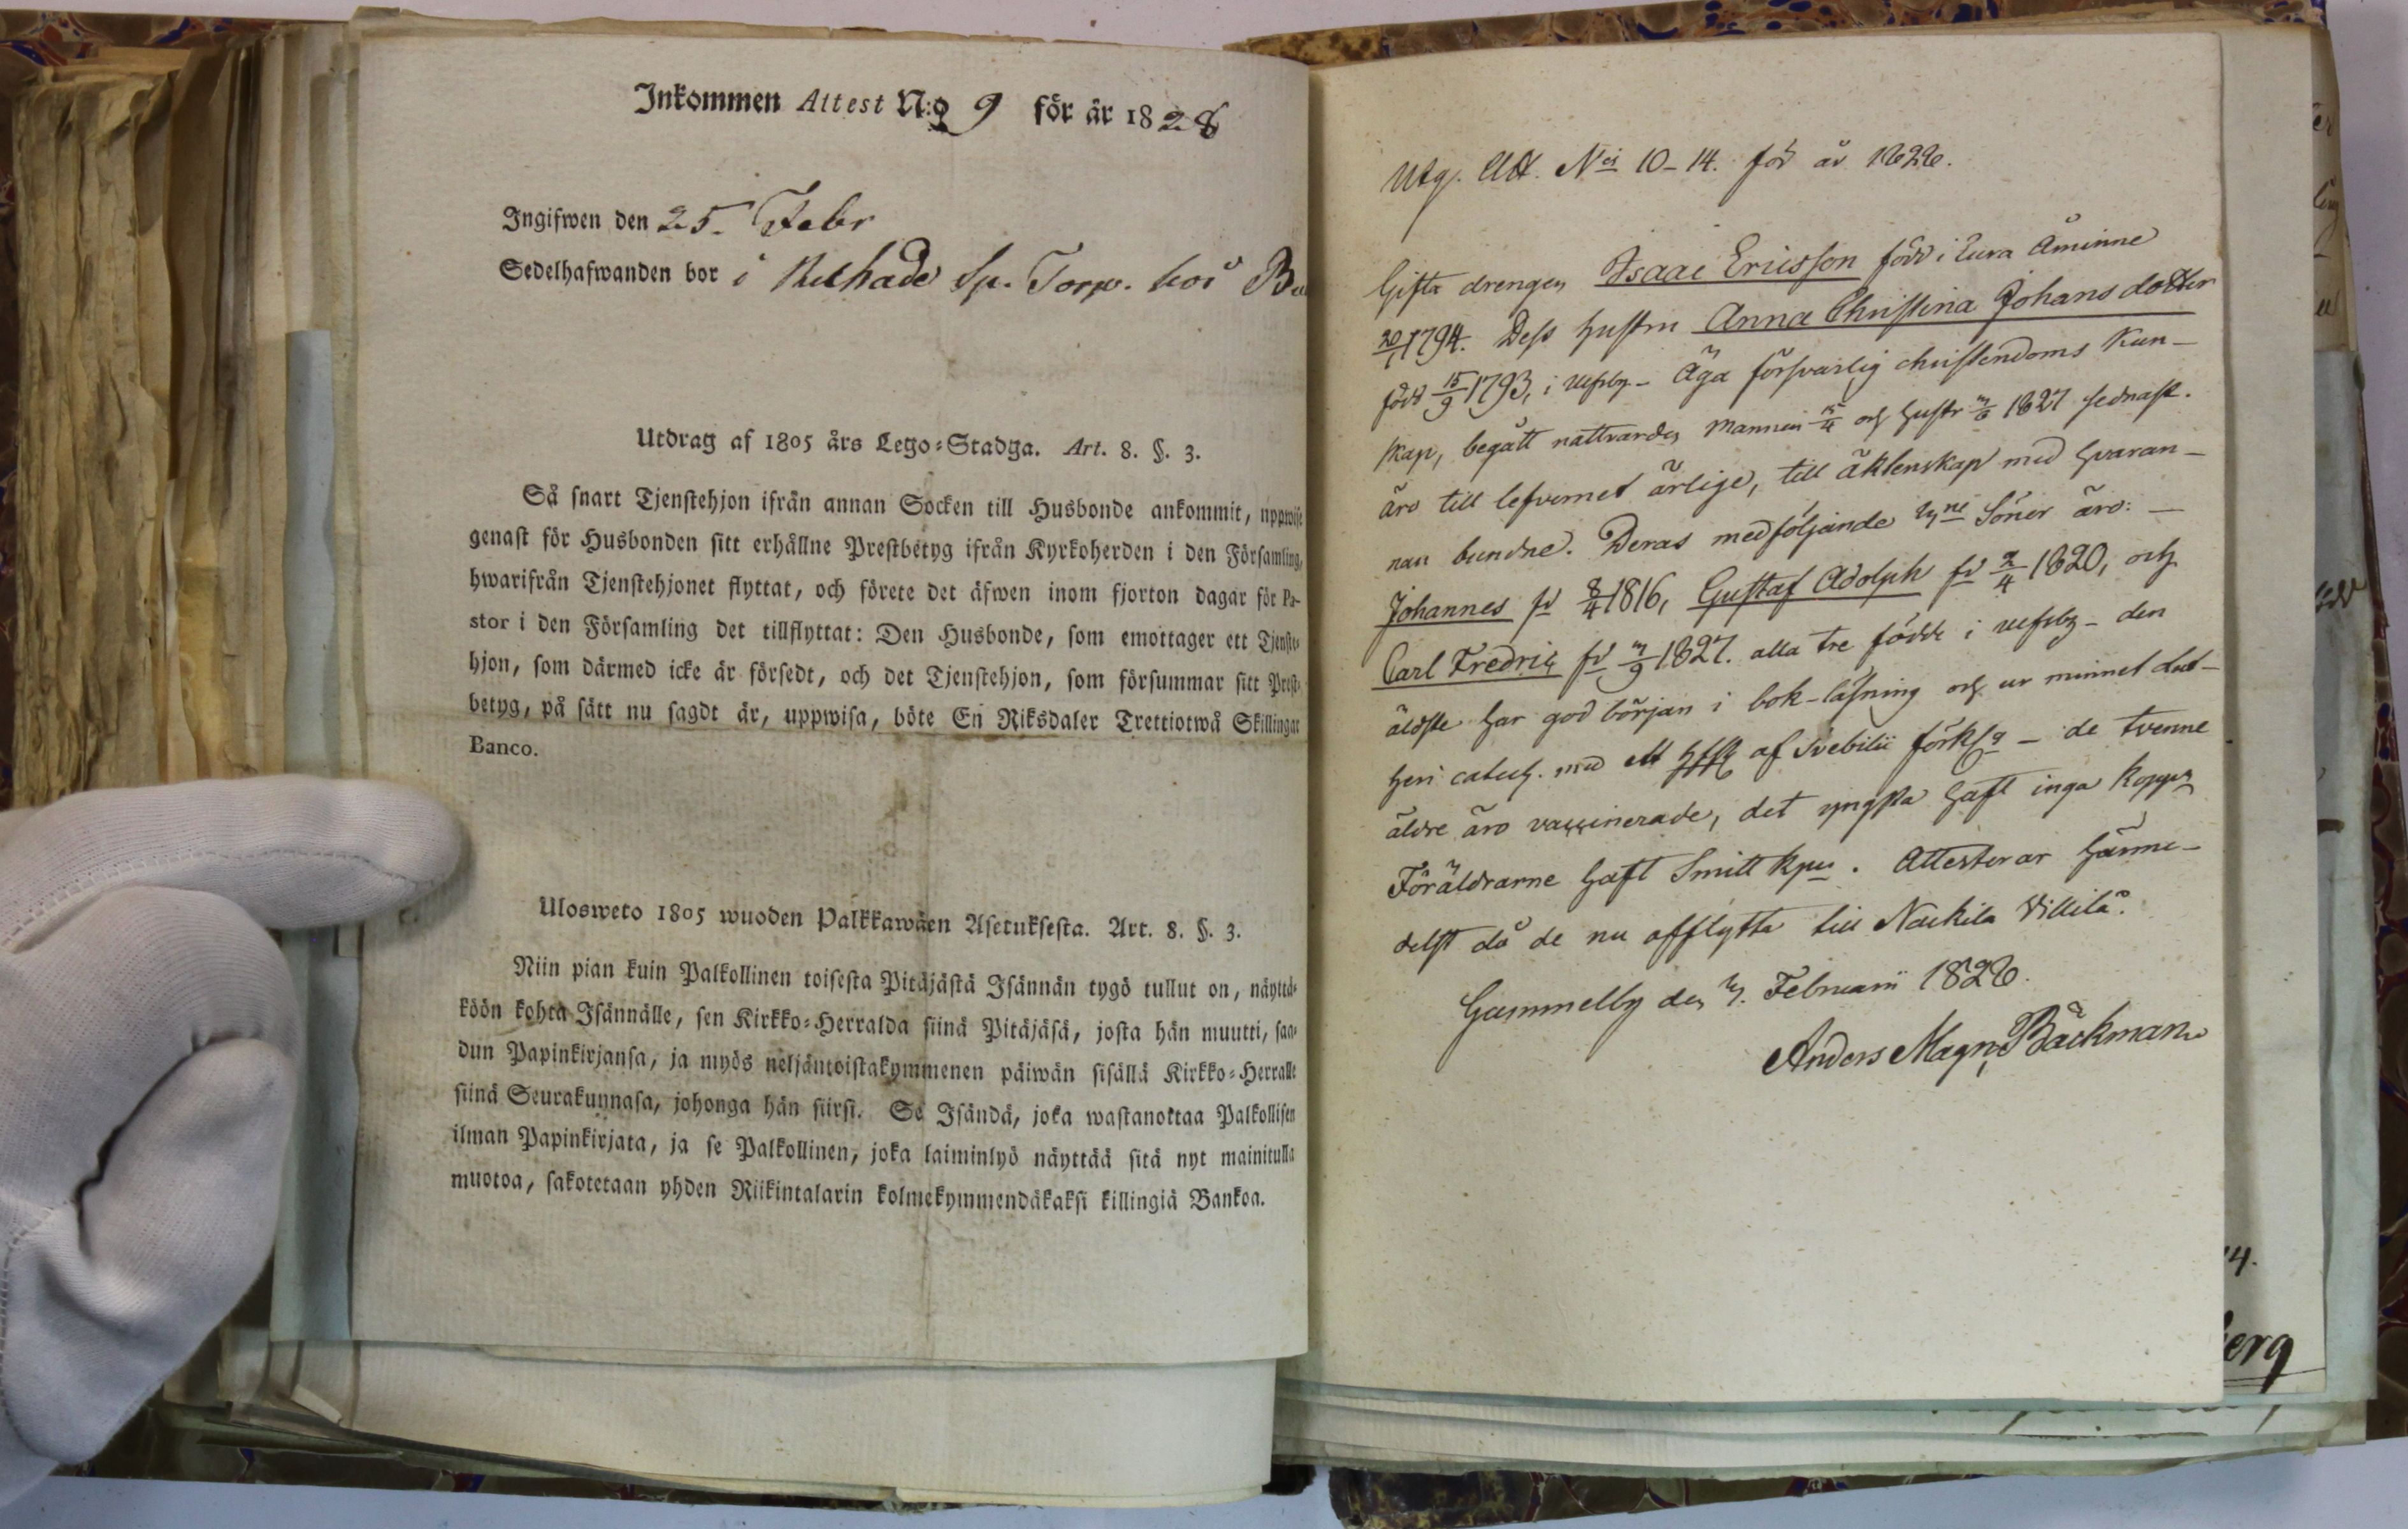 Inkommen Attest N:o 9 för år 1828
Ingifwen den 25. Febr
Sedelhafwanden bor i Torp. hos
Utdrag af 1805 års Lego-Stadga. Art. 8. §. 3.
Så snart Tjenstehjon ifrån annan Socken till Husbonde ankommit, uppwise
genast för Husbonden sitt erhållne Prestbetyg ifrån Kyrkoherden i den Församling,
hwarifrån Tjenstehjonet flyttat, och förete det äfwen inom fjorton dagar för Pa-
stor i den Församling det tillflyttat: Den Husbonde, som emottager ett Tjenste-
hjon, som därmed icke är försedt, och det Tjenstehjon, som försummar sitt Prest-
betyg, på sätt nu sagdt är, uppwisa, böte En Riksdaler Trettiotwå Skillingar
Banco.
Ulosweto 1805 wuoden Palkkawäen Asetuksesta. Art. 8. §. 3.
Niin pian kuin Palkollinen toisesta Pitäjästä Isännän tygö tullut on, näyttä-
köön kohta Isännälle, sen Kirkko-Herralda siinä Pitäjäsä, josta hän muutti, saa-
dun Papinkirjansa, ja myös neljäntoistakymmenen päiwän sisällä Kirkko-Herralle
siinä Seurakunnasa, johonga hän siirsi. Se Isändä, joka wastanottaa Palkollisen
ilman Papinkirjata, ja se Palkollinen, joka laiminlyö näyttää sitä nyt mainitulla
muotoa, sakotetaan yhden Riikintalarin kolmekymmendäkaksi killingiä Bankoa.
Utg. Att. N:is 10-14. för år 1828.
Gifta drengen Isaac Ericsson född i Eura Åminne
1794. Dess hustru Anna Christina Johansdotter
född 15/9 1793, i Ulfsby - Äga försvarlig christendoms kun-
skap, begått nattvarden mannen och hustr 1827 sednast.
äro till lefvernet ärlige, till äktenskap med hvaran-
nan bundne. Deras medföljande Söner äro: -
Johannes fd 8/4 1816, Gustaf Adolph fd 2/4 1820, och
Carl Fredric fd 1827. alla tre födde i Ulfsby - den
äldste har god början i bok-läsning och ur minnet Lut-
heri catech. med ett af Svebilii förkl - de tvenne
äldre äro vaccinerade, det yngsta haft inga koppor
Föräldrarne haft Smittkpr. Attesterar härme-
delst då de nu afflytta till Nackila Villilä.
Gammelby den 7. Februarii 1828.
Anders Magn. Bäckman
14.
erg